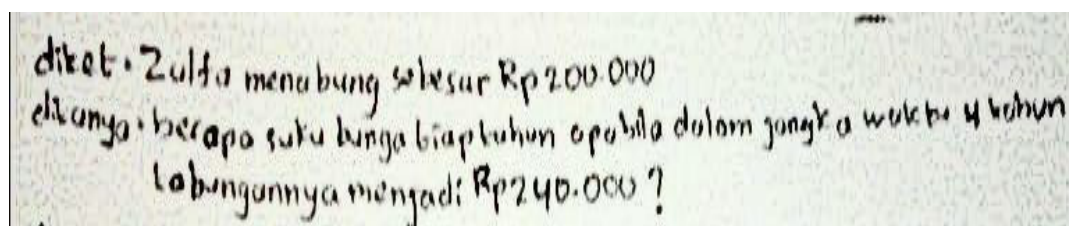 diket • Zulfa menabung sebesar Rp200.000
ditanya • berapa suku bunga tiap tahun apabila dalam jangka waktu 4 tahun
tabungannya menjadi Rp240.000?